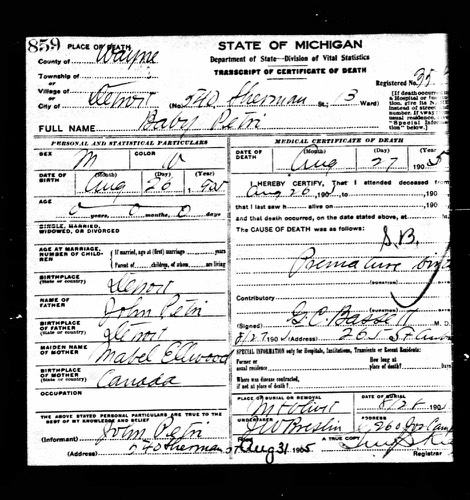 859 PLACE OF DEATH
County of Wayne
Township of
or
Village of
or
City of Detroit No. 540 Sherman St.; 13 Ward)
STATE OF MICHIGAN
Department of State—Division of Vital Statistics
TRANSCRIPT OF CERTIFICATE OF DEATH
Registered No. 35
(If death occurred
FULL NAME Baby Petri
PERSONAL AND STATISTICAL PARTICULARS
SEX M COLOR W
DATE OF BIRTH (Month) (Day) (Year)
Aug 26, 1905
AGE
0 years, 0 months, 0 days
SINGLE, MARRIED,
WIDOWED, OR DIVORCED
AGE AT MARRIAGE,
NUMBER OF CHILDREN
If married, age at (first) marriage years
Parent of children, of whom are living
BIRTHPLACE
(State or country) Detroit
NAME OF
FATHER John Petri
BIRTHPLACE
OF FATHER
(State or country) Detroit
MAIDEN NAME
OF MOTHER Mabel Ellwood
BIRTHPLACE
OF MOTHER
(State or country) Canada
OCCUPATION
THE ABOVE STATED PERSONAL PARTICULARS ARE TRUE TO THE
BEST OF MY KNOWLEDGE AND BELIEF
(Informant) John Petri
(Address) 540 Sherman St
MEDICAL CERTIFICATE OF DEATH
DATE OF DEATH (Month) (Day) (Year)
Aug 27 1905
I HEREBY CERTIFY, That I attended deceased from
Aug 26, 190 to 190
that I last saw h alive on 190
and that death occurred, on the date stated above, at
The CAUSE OF DEATH was as follows:
S.B.
Premature Birth
(DURATION)
Contributory
(DURATION)
(Signed) G C Bassett M. D.
8/27 1905 (Address) 265 St
SPECIAL INFORMATION only for Hospitals, Institutions, Transients or Recent Residents:
Former or
usual residence
How long at
place of death?
Where was disease contracted,
if not at place of death?
PLACE OF BURIAL OR REMOVAL
Mt Olivet
DATE OF BURIAL
8/28, 190
UNDERTAKER
J W Breslin
ADDRESS
860 Jos Camp
Aug 31 1905
A TRUE COPY
Registrar